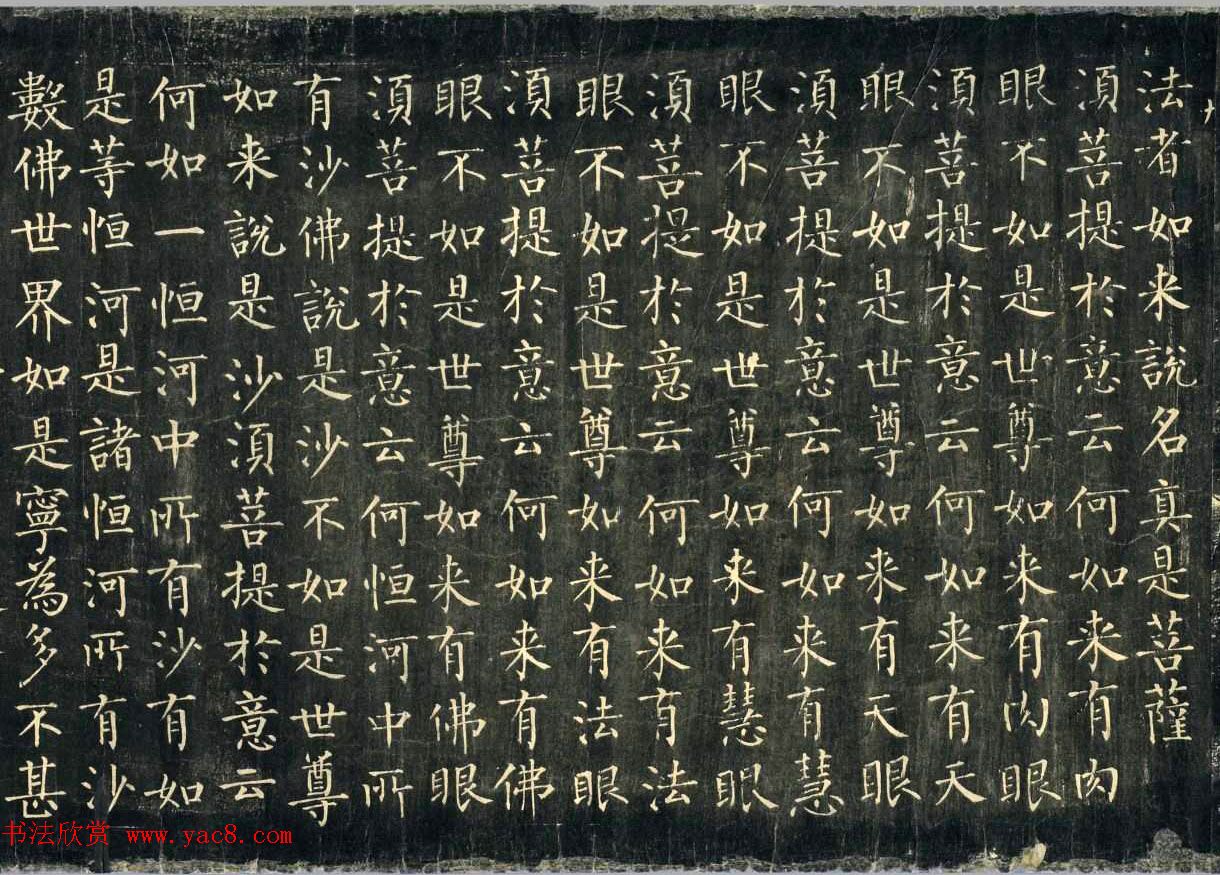 法者如来說名真是菩薩
湏菩提於意云何如来有肉
眼不如是世尊如来有肉眼
湏菩提於意云何如来有天
眼不如是世尊如来有天眼
湏菩提於意云何如来有慧
眼不如是世尊如来有慧眼
湏菩提於意云何如来有法
眼不如是世尊如来有法眼
湏菩提於意云何如来有佛
眼不如是世尊如来有佛眼
湏菩提於意云何恒河中所
有沙佛說是沙不如是世尊
如来說是沙湏菩提於意云
何如一恒河中所有沙有如
是等恒河是諸恒河所有沙
數佛世界如是寧為多不甚
书法欣赏 www.yac8.com